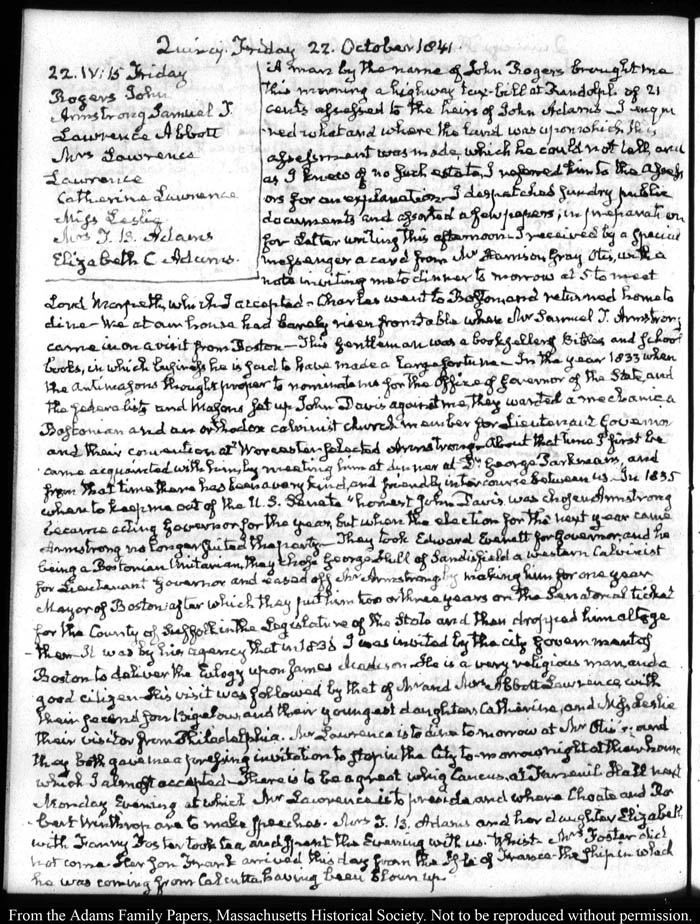 Quincy. Friday 22. October 1841.
22. IV:15 Friday
Rogers John
Armstrong Samuel T.
Lawrence Abbott
Mrs Lawrence
Lawrence
Catherine Lawrence
Miss Leslie
Mrs T. B. Adams
Elizabeth C Adams.
A man by the name of John Rogers brought me
this morning a highway tax-bill at Randolph of 21
cents assessed to the heirs of John Adams. I enqui
red what and where the land was upon which this
assessment was made, which he could not tell, and
as I knew of no such estate, I referred him to the Assess
ors for an explanation. I despatched sundry public
documents and assorted a few papers, in preparation
for Letter writing this afternoon. I received by a special
messenger a card from Mr Harrison Gray Otis, with a
note inviting me to dinner to morrow at 5 to meet
Lord Morpeth, which I accepted. Charles went to Boston and returned home to
dine. We at our house had barely risen from table when Mr Samuel T. Armstrong
came in on a visit from Boston. This Gentleman was a bookseller of Bibles and school
books, in which business he is said to have made a large fortune. In the year 1833 when
the Antimasons thought proper to nominate me for the Office of Governor of the State, and
the federalists and Masons set up John Davis against me, they wanted a mechanic a
Bostonian and an orthodox calvinist church member for Lieutenant Governor
and their convention at Worcester selected Armstrong. About that time I first be
came acquainted with him, by meeting him at dinner at Dr George Parkman's, and
from that time there has been a very kind, and friendly intercourse between us. In 1835
when to keep me out of the U.S. Senate "honest John Davis was chosen, Armstrong
became acting Governor for the year, but when the election for the next year came
Armstrong no longer suited the party. They took Edward Everett for Governor, and he
being a Bostonian Unitarian, they chose George Hull of Sandisfield a western Calvinist
for Lieutenant Governor and eased off Mr Armstrong by making him for one year
Mayor of Boston after which they put him two or three years on the Senatorial ticket
for the County of Suffolk in the Legislature of the State and then dropped him altoge
ther. It was by his agency that in 1836 I was invited by the city Government of
Boston to deliver the Eulogy upon James Madison. He is a very religious man, and a
good citizen. His visit was followed by that of Mr and Mrs Abbott Lawrence, with
their second son Bigelow, and their youngest daughter Catherine, and Miss Leslie
their visitor from Philadelphia. Mr Lawrence is to dine to morrow at Mr Otis's; and
they both gave me a pressing invitation to stop in the City to-morrow night at their house
which I almost accepted. There is to be a great whig Caucus, at Faneuil Hall next
Monday Evening at which Mr Lawrence is to preside and where Choate and Ro
bert Winthrop are to make speeches. Mrs T. B. Adams and her daughter Elizabeth
with Fanny Foster took tea and spent the Evening with us. Whist. Mrs Foster did
not come. Her son Frank arrived this day from the Isle of France. the ship in which
he was coming from Calcutta having been blown up.
From the Adams Family Papers, Massachusetts Historical Society. Not to be reproduced without permission.